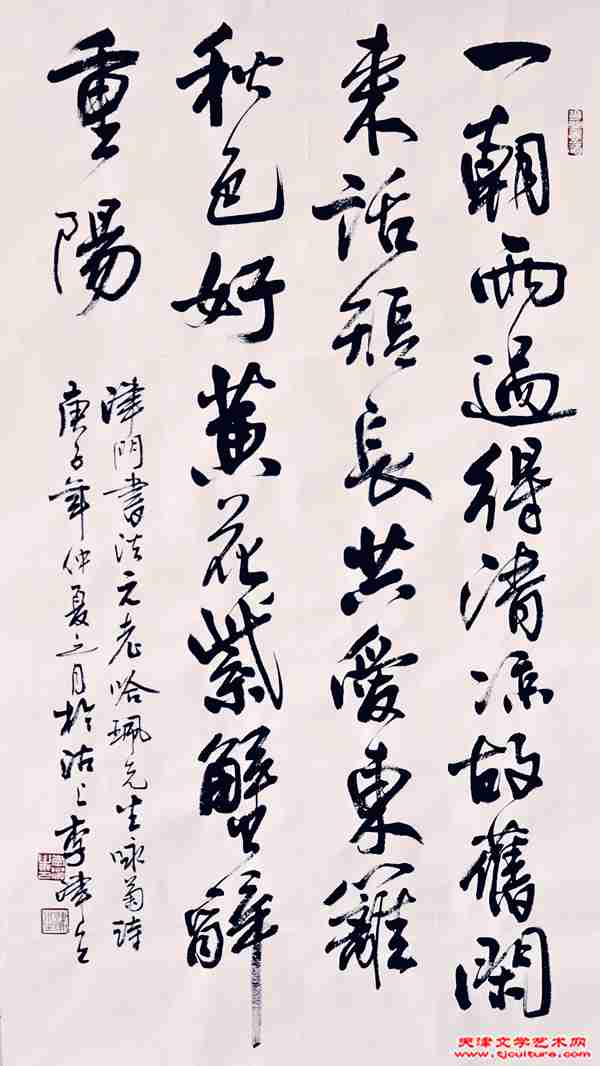 一朝雨過得清涼故舊閑
來話短長共愛東籬
秋色好黄花紫蟹醉
重陽
津門書法元老哈珮先生咏菊詩
庚子年仲夏之月於沽上李
天津文学艺术网
www.tjculture.com